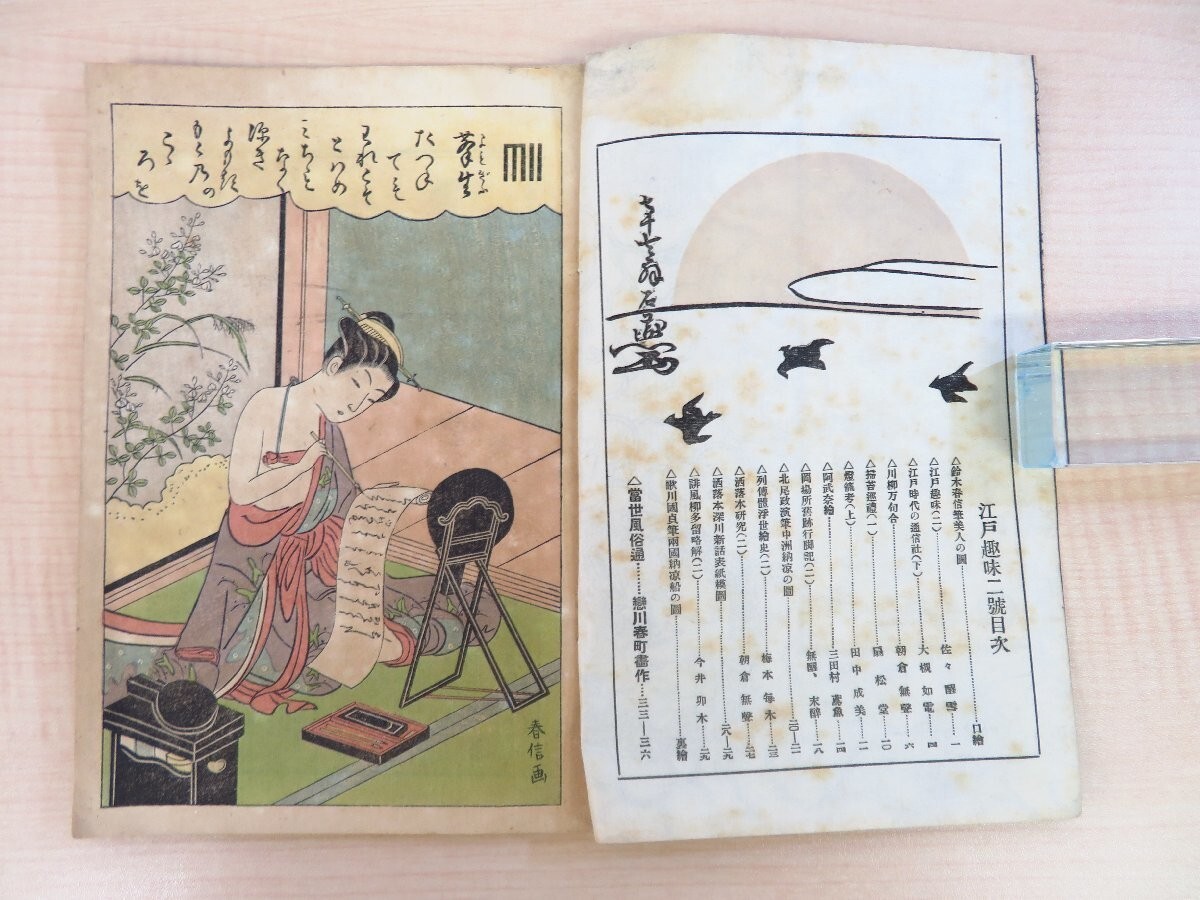 江戸趣味二號目次
△鈴木春信筆美人の圖……口繪
△江戸趣味(二)……佐々醒雪…一
△江戸時代の通信社(下)……大槻如電…四
△川柳万句合……朝倉無聲…六
△掃苔巡禮(一)……扇松堂…一〇
△燈籠考(上)……田中成美…一一
△阿武奈繪……三田村鳶魚…一四
△岡場所舊跡行脚記(二)……無聲、末醉…一八
△北尾政演筆中洲納凉の圖……二〇—二一
△列傳體浮世繪史(二)……梅本毎木…二三
△洒落本研究(二)……朝倉無聲…二七
△洒落本深川新話表紙模圖……二八—二九
△誹風柳多留略解(二)……今井卯木…二九
△歌川國貞筆兩國納凉船の圖……裏繪
△當世風俗通……戀川春町畵作…三三—三六
たつね
ても
われとそ
とはめ
みちも
なく
深き
よもきか
もとの
こゝ
ろを
春信画